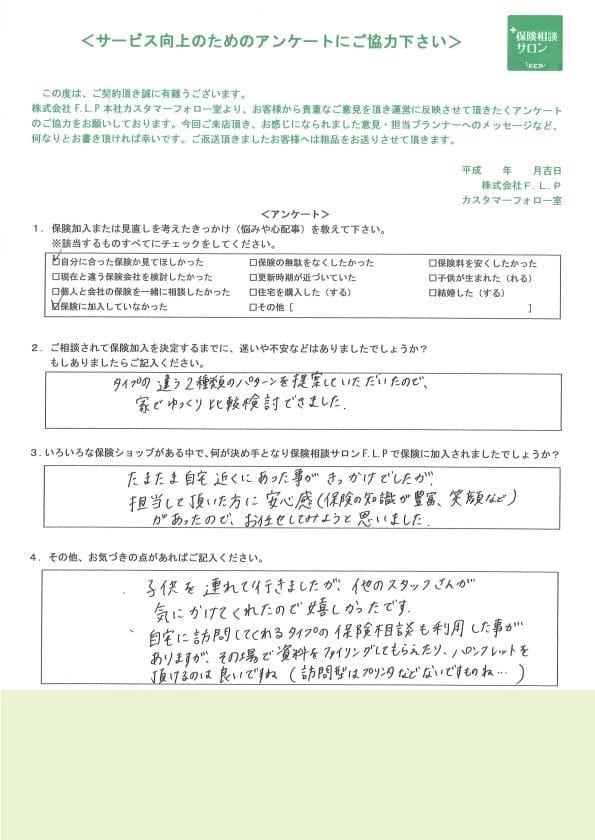 ＜サービス向上のためのアンケートにご協力下さい＞
保険相談
サロン
F.L.P
この度は、ご契約頂き誠に有難うございます。
株式会社F.L.P本社カスタマーフォロー室より、お客様から貴重なご意見を頂き運営に反映させて頂きたくアンケート
のご協力をお願いしております。今回ご来店頂き、お感じになられました意見・担当プランナーへのメッセージなど、
何なりとお書き頂ければ幸いです。ご返送頂きましたお客様へは粗品をお送りさせて頂きます。
平成　年　月吉日
株式会社F.L.P
カスタマーフォロー室
＜アンケート＞
1．保険加入または見直しを考えたきっかけ（悩みや心配事）を教えて下さい。
※該当するものすべてにチェックをしてください。
☑自分に合った保険か見てほしかった　□保険の無駄をなくしたかった　□保険料を安くしたかった
□現在と違う保険会社を検討したかった　□更新時期が近づいていた　□子供が生まれた（れる）
□個人と会社の保険を一緒に相談したかった　□住宅を購入した（する）　□結婚した（する）
☑保険に加入していなかった　□その他［　］
2．ご相談されて保険加入を決定するまでに、迷いや不安などはありましたでしょうか？
もしありましたらご記入ください。
タイプの違う2種類のパターンを提案していただいたので、
家でゆっくり比較検討できました.
3．いろいろな保険ショップがある中で、何が決め手となり保険相談サロンF.L.Pで保険に加入されましたでしょうか？
たまたま自宅近くにあった事がきっかけでしたが、
担当して頂いた方に安心感（保険の知識が豊富、笑顔など）
があったので、お任せしてみようと思いました.
4．その他、お気づきの点があればご記入ください。
・子供を連れて行きましたが、他のスタッフさんが
気にかけてくれたので嬉しかったです.
・自宅に訪問してくれるタイプの保険相談も利用した事が
ありますが、その場で資料をファイリングしてもらえたり、パンフレットを
頂けるのは良いですね（訪問型はプリンタなどないですものね…）